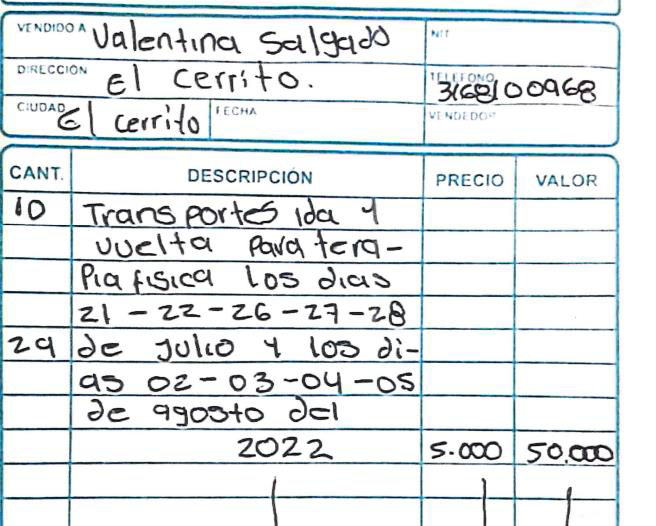 VENDIDO A Valentina Salgado NIT
DIRECCIÓN El Cerrito. TELEFONO 3168100968
CIUDAD El Cerrito FECHA VENDEDOR
CANT. DESCRIPCIÓN PRECIO VALOR
10 Transportes ida y
vuelta para tera-
pia fisica los dias
21 - 22 - 26 - 27 - 28
29 de Julio y los di-
as 02 - 03 - 04 - 05
de agosto del
2022 5.000 50.000